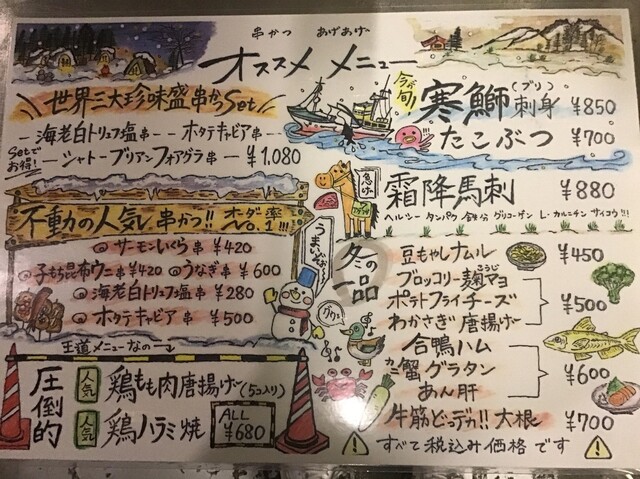 串かつ あげあげ
オススメ メニュー
世界三大珍味盛串かつSet
海老白トリュフ塩串 ホタテキャビア串
Setでお得!
シャトーブリアンフォアグラ串 ¥1,080
不動の人気 串かつ!! オーダー率No.1!!!
サーモンいくら串 ¥420
子もち昆布ウニ串 ¥420 うなぎ串 ¥600
海老白トリュフ塩串 ¥280
ホタテキャビア串 ¥500
王道メニューなの
圧倒的
人気 鶏もも肉唐揚げ(5コ入り)
人気 鶏ハラミ焼
ALL ¥680
今が旬!
寒鰤(ブリ)刺身 ¥850
たこぶつ ¥700
霜降馬刺 ¥880
ヘルシー タンパク 鉄分 グリコーゲン L-カルニチン サイコウ!!!
冬の一品
豆もやしナムル ¥450
ブロッコリー麹マヨ
こうじ
ポテトフライチーズ ¥500
わかさぎ唐揚げ
合鴨ハム
カニ
蟹グラタン ¥600
あん肝
牛筋どっデカ!! 大根 ¥700
すべて税込み価格です